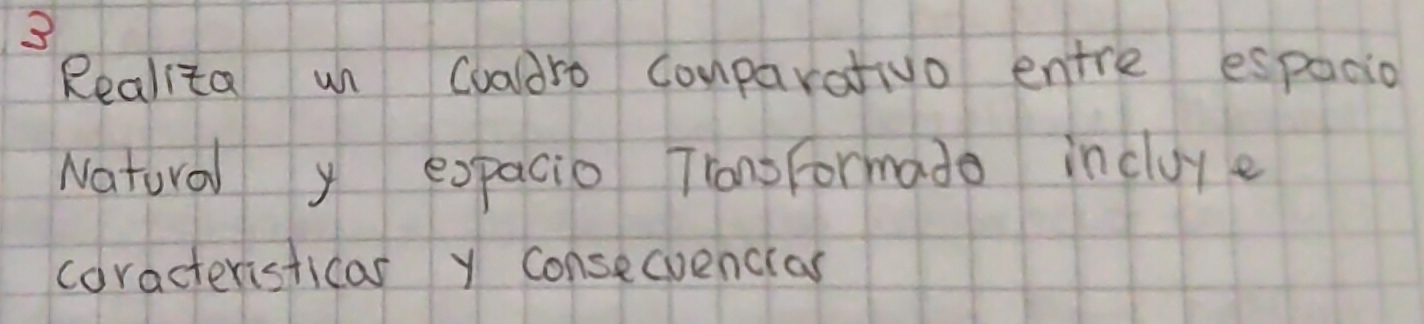 3
Realiza un cuadro comparativo entre espacio
Natural y espacio Transformado incluye
caracteristicas y consecuencias